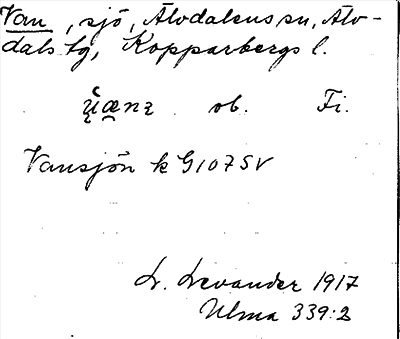 Van, sjö, Älvdalens sn, Älv-
dals tg, Kopparbergs l.
ob. Fi.
Vansjön k G107SV
L. Levander 1917
Ulma 339:2